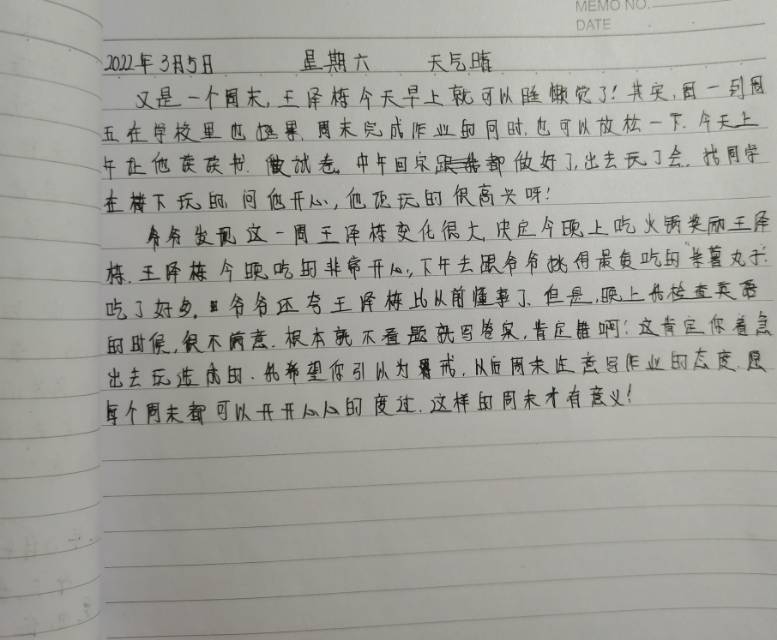 MEMO NO.
DATE
2022年3月5日 星期六 天气晴
又是一个周末,王泽栋今天早上就可以睡懒觉了!其实,周一到周
五在学校里也挺累,周末完成作业的同时,也可以放松一下.今天上
午让他读读书.做试卷.中午回家都做好了,出去玩了会.找同学
在楼下玩的.问他开心,他还玩的很高兴呀!
爷爷发现这一周王泽栋变化很大,决定今晚上吃火锅奖励王泽
栋.王泽栋今晚吃的非常开心,下午去跟爷爷挑得最贵吃的"紫薯丸子.
吃了好多.爷爷还夸王泽栋比从前懂事了.但是,晚上我检查英语
的时候,很不满意.根本就不看题就写答案,肯定错啊!这肯定你着急
出去玩造成的.我希望你引以为戒,从后周末注意写作业的态度.愿
每个周末都可以开开心心的度过.这样的周末才有意义!